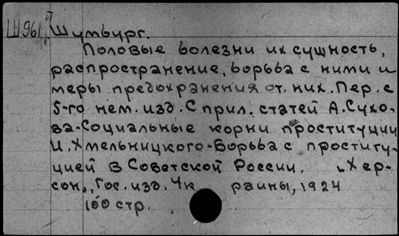 Ш961,п Шумбург.
Половые болезни их сущность,
распространение, борьба с ними и
меры предохранения от. них. Пер. с
5-го нем. изд. С прил. статей А.Сухо-
ва-Социальные корни проституции
И. Хмельницкого-Борьба с проститу-
цией в Советской России. "Хер-
сон", Гос. изд. Ук раины, 1924
100 стр.